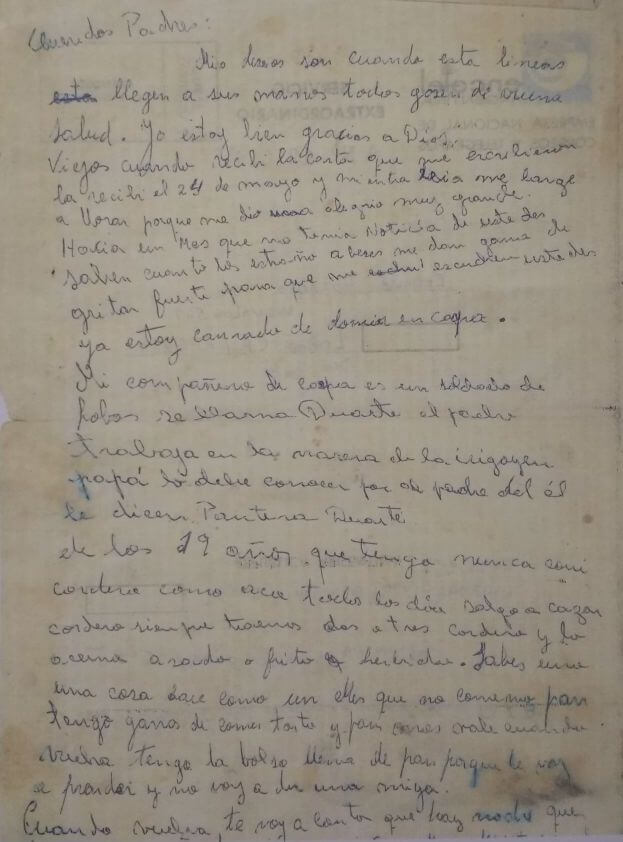 Queridos Padres:
Mijo deseos son cuando esta lineas
esta llegen a sus manos todos gosen de vuena
salud. Yo estoy bien gracias a Dios.
Viejos cuando recibi la carta que me escribieron
la recibi el 24 de mayo y mientra leia me large
a llorar porque me dio una alegria muy grande.
Hacia un Mes que no tenia Noticia de ustedes
saben cuanto los estraño a beses me dan gana de
gritar fuerte para que me escuchen ustedes
ya estoy cansado de dormir en carpa.
Mi compañero de carpa es un soldado de
Lobos se llama Duarte el padre
trabaja en la de la irigoyen
papá lo debe conocer por el padre del él
le dicen Pantera Duarte
de los 19 años que tengo nunca comi
cordero como aca todos los dia salgo a cazar
cordero siempre traemos dos o tres cordero y lo
asemo asado o frito o herbido. Sabes una
una cosa hace como un Mes que no comemo pan
tengo ganas de comer torta y pan cuando
vuelva tengo la bolsa llena de pan porque le voy
a prender y no voy a dar una miga.
Cuando vuelva te voy a contar que hay nada que
EXTRAORDINARIO
encotel
EMPRESA NACIONAL DE